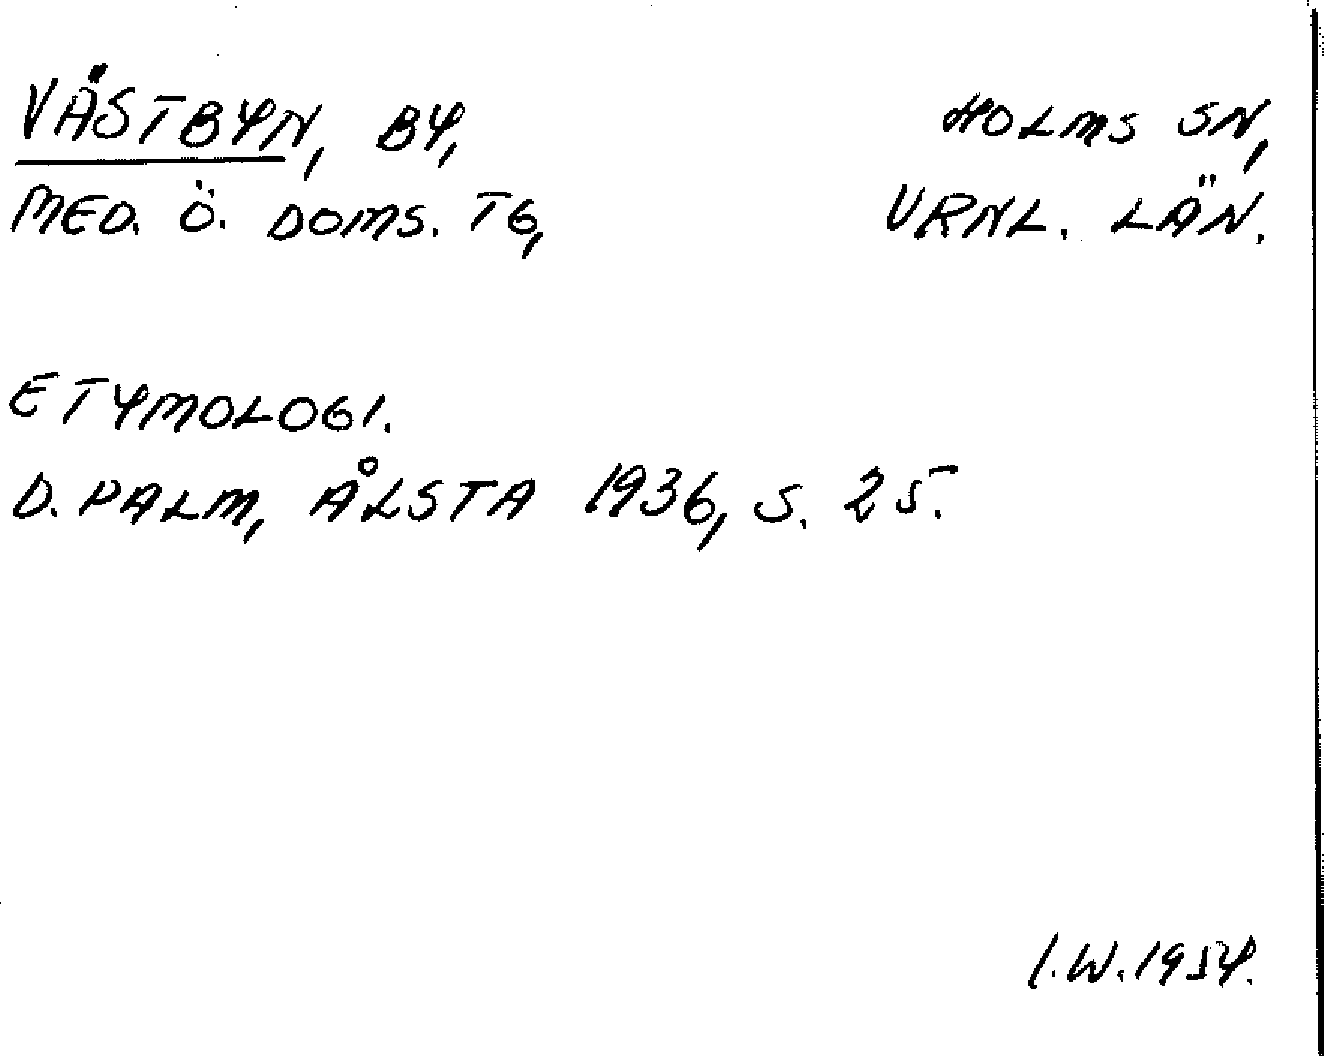 VÄSTBYN, BY, HOLMS SN,
MED. Ö. DOMS. TG, VRNL. LÄN.
ETYMOLOGI.
D. PALM, ÅLSTA 1936, S. 25.
I.W. 1954.